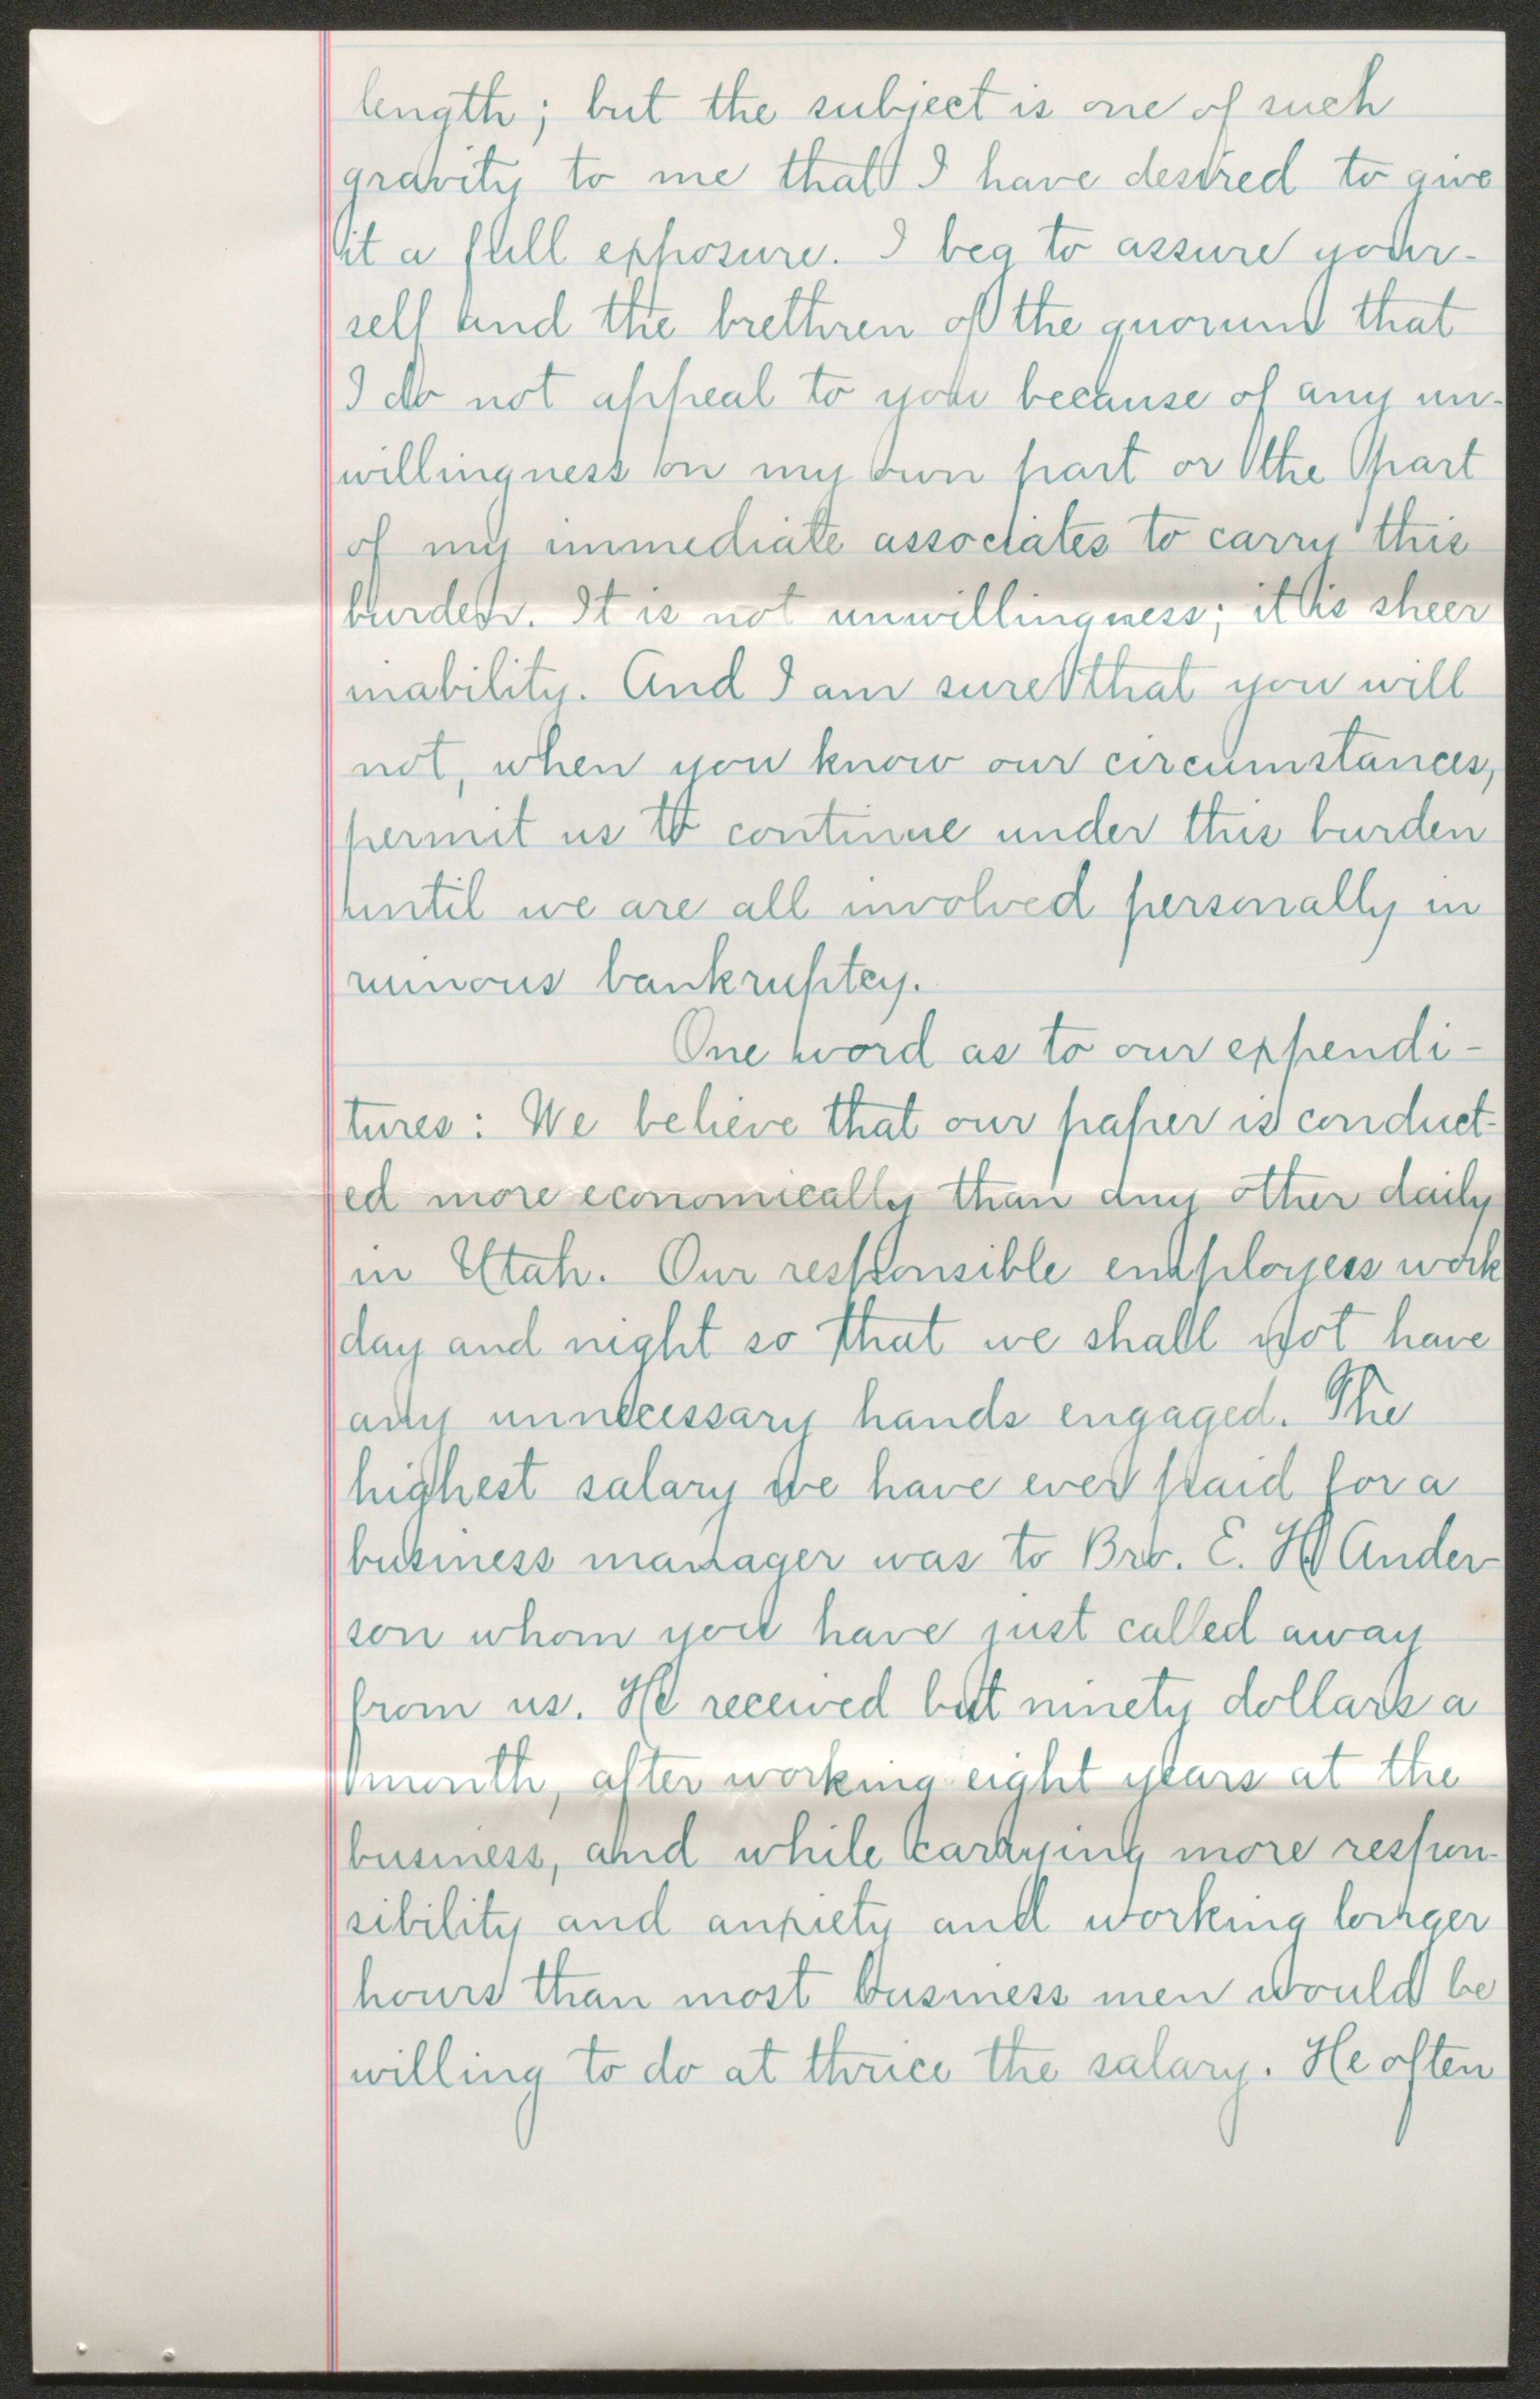 length; but the subject is one of such
gravity to me that I have desired to give
it a full exposure. I beg to assure your-
self and the brethren of the quorum that
I do not appeal to you because of any un-
willingness on my own part or the part
of my immediate associates to carry this
burden. It is not unwillingness; it is sheer
inability. And I am sure that you will
not, when you know our circumstances,
permit us to continue under this burden
until we are all involved personally in
ruinous bankruptcy.
One word as to our expendi-
tures: We believe that our paper is conduct-
ed more economically than any other daily
in Utah. Our responsible employees work
day and night so that we shall not have
any unnecessary hands engaged. The
highest salary we have ever paid for a
business manager was to Bro. E. H. Ander-
son whom you have just called away
from us. He received but ninety dollars a
month, after working eight years at the
business, and while carrying more respon-
sibility and anxiety and working longer
hours than most business men would be
willing to do at thrice the salary. He often